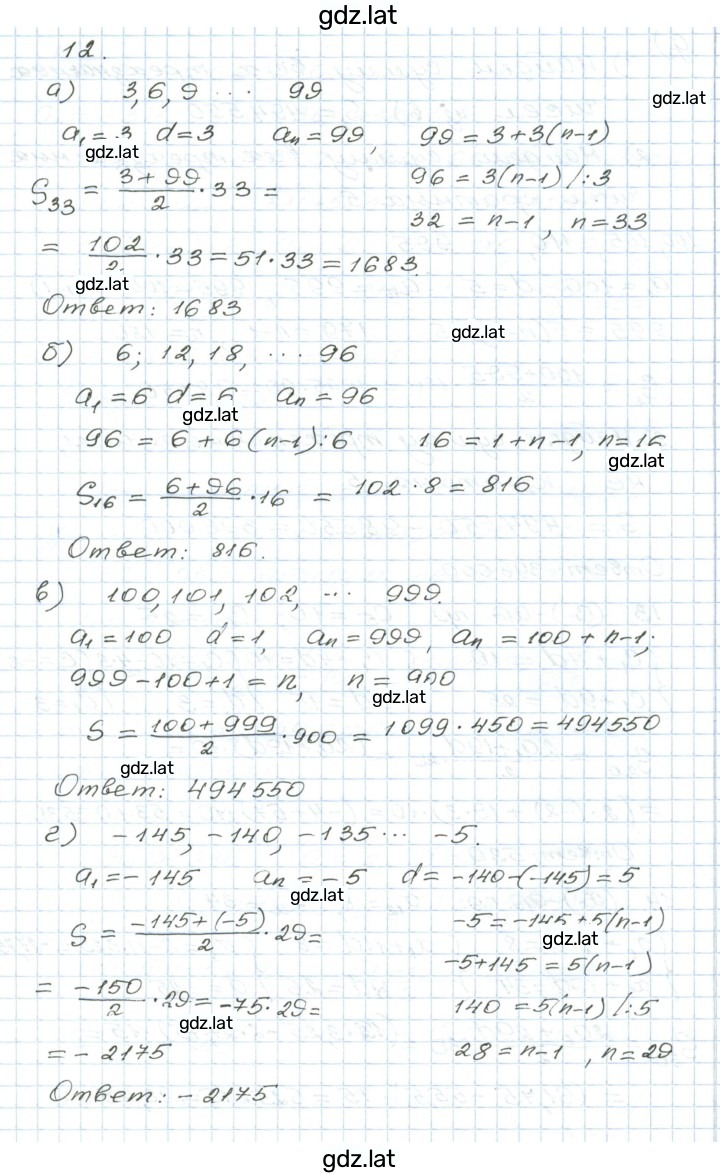 gdz.lat
12.
а) 3, 6, 9 ... 99
gdz.lat
a₁ = 3 d = 3 aₙ = 99, 99 = 3 + 3(n-1)
gdz.lat
S₃₃ = (3 + 99)/2 · 33 = 96 = 3(n-1) /:3
32 = n-1, n = 33
= 102/2 · 33 = 51 · 33 = 1683.
gdz.lat
Ответ: 1683
gdz.lat
б) 6; 12, 18, ... 96
a₁ = 6 d = 6 aₙ = 96
gdz.lat
96 = 6 + 6(n-1):6 16 = 1 + n - 1, n = 16
gdz.lat
S₁₆ = (6 + 96)/2 · 16 = 102 · 8 = 816
Ответ: 816.
в) 100, 101, 102, ... 999.
a₁ = 100 d = 1, aₙ = 999, aₙ = 100 + n - 1;
999 - 100 + 1 = n, n = 900
gdz.lat
S = (100 + 999)/2 · 900 = 1099 · 450 = 494550
gdz.lat
Ответ: 494550
г) -145, -140, -135 ... -5.
a₁ = -145 aₙ = -5 d = -140-(-145) = 5
gdz.lat
S = (-145 + (-5))/2 · 29 = -5 = -145 + 5(n-1)
gdz.lat
-5 + 145 = 5(n-1)
= -150/2 · 29 = -75 · 29 = 140 = 5(n-1) /:5
gdz.lat
= -2175 28 = n-1, n = 29
Ответ: -2175
gdz.lat